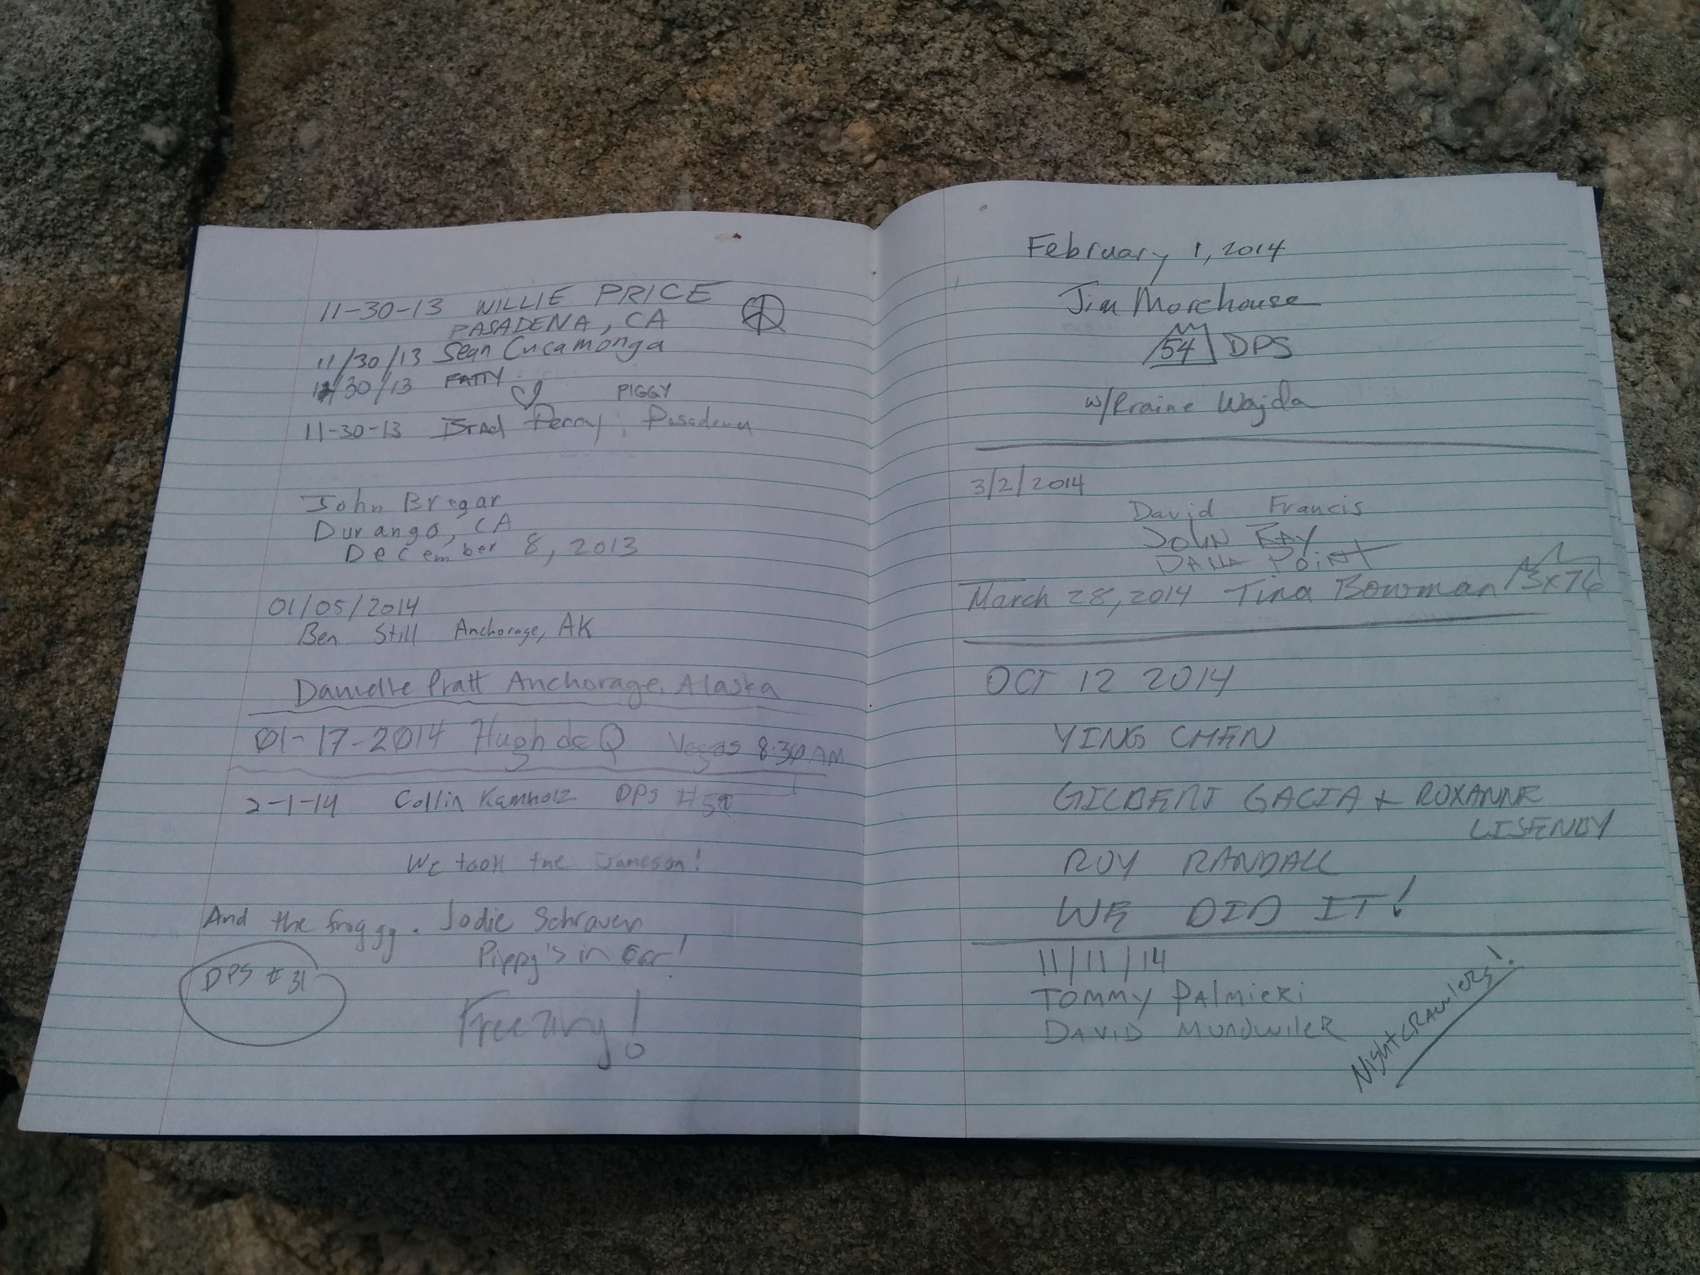 11-30-13 WILLIE PRICE
PASADENA, CA
11/30/13 Sean Cucamonga
11/30/13 FATTY
PIGGY
11-30-13 Brad Perry, Pasadena
John Bregar
Durango, CA
December 8, 2013
01/05/2014
Ben Still Anchorage, AK
Danielle Pratt Anchorage, Alaska
01-17-2014 Hugh de Q Vegas 8:30 AM
2-1-14 Collin Kamholz DPS
We took the Jameson!
And the froggy. Jodie Schraven
Pippy's in Ear!
DPS # 31
Freezing!
February 1, 2014
Jim Morehouse
54 DPS
w/ Wajda
3/2/2014
David Francis
JOHN RAY
DANA POINT
March 28, 2014 Tina Bowman 3x76
OCT 12 2014
YING CHEN
GILBERT GACIA + ROXANNE
LISENBY
ROY RANDALL
WE DID IT!
11/11/14
TOMMY PALMIERI
DAVID MUNDWILER
NightCRAWLERS!